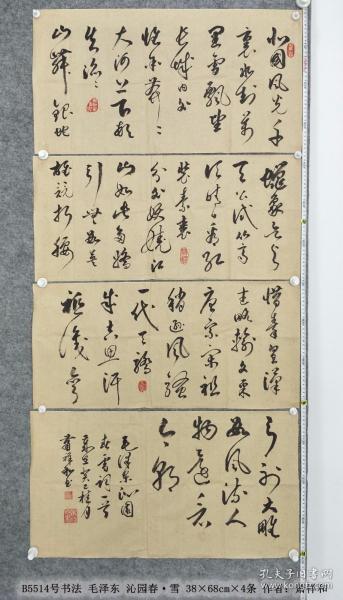 北国风光千
里冰封万
里雪飘望
长城内外
惟余莽〻
大河上下顿
失滔〻
山舞银蛇
蜡象欲与
天公试比高
须晴日看红
装素裹
分外妖娆江
山如此多娇
引无数英
雄竞折腰
惜秦皇汉
武略输文采
唐宗宋祖
稍逊风骚
一代天骄
成吉思汗
祗识弯
弓射大雕
数风流人
物还看
今朝
毛泽东沁园
春雪词一首
癸巳桂月
萧祥和书
B5514号书法 毛泽东 沁园春·雪 38×68cm×4条 作者：萧祥和
孔夫子旧书网